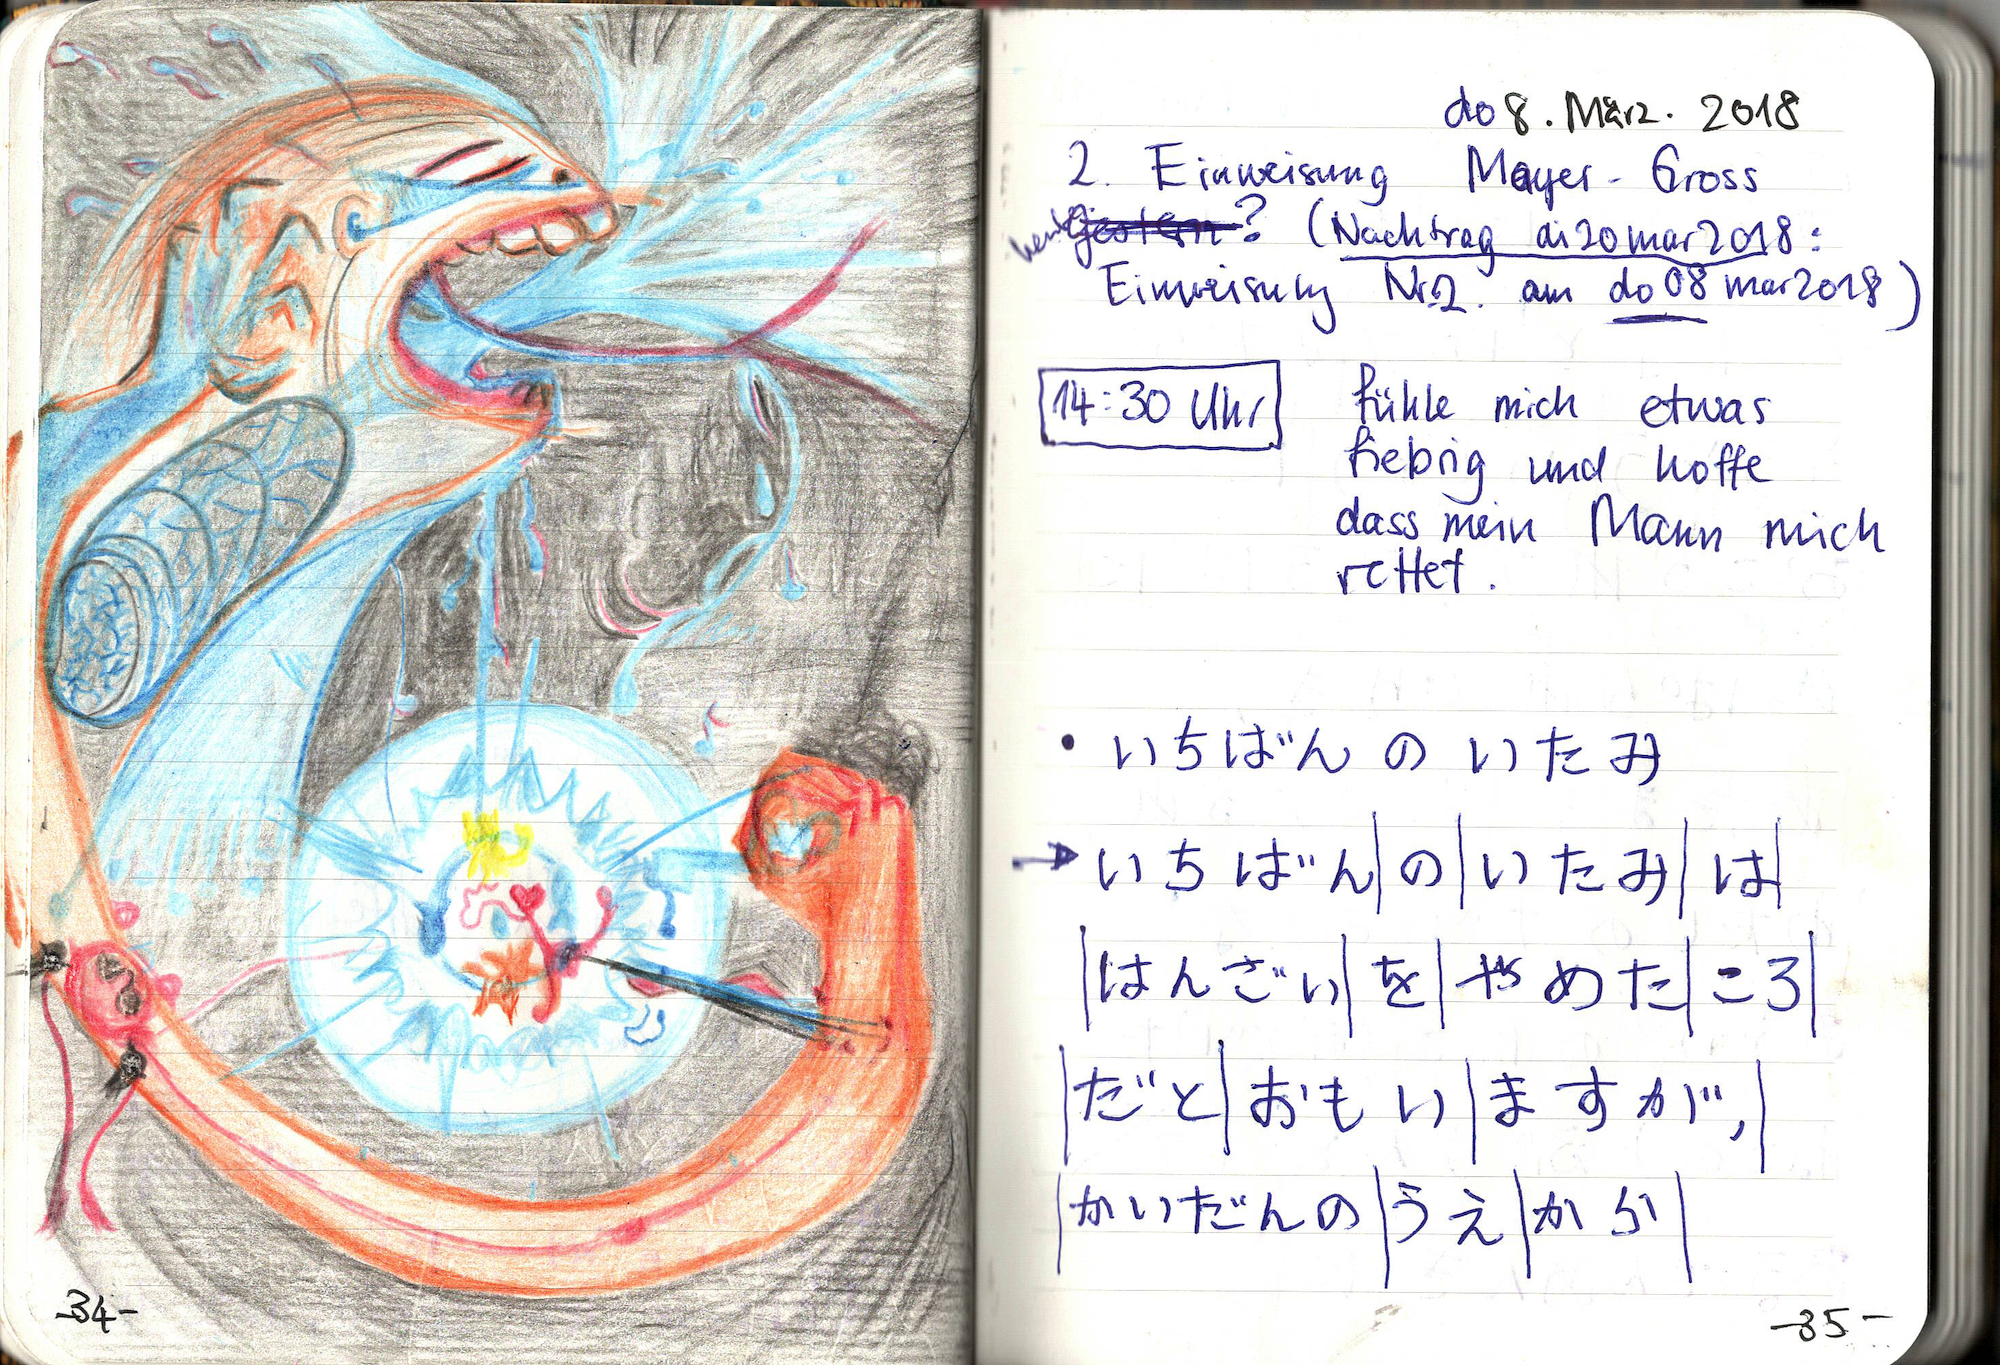 -34-
do 8. März. 2018
2. Einweisung Mayer-Gross
heute gestern? (Nachtrag di20mar2018:
Einweisung Nr.2. am do 08 mar2018)
14:30 Uhr fühle mich etwas
fiebrig und hoffe
dass mein Mann mich
rettet.
• いちばん の いたみ
→ いちばん|の|いたみ|は|
|はんざい|を|やめた|ころ|
|だと|おもい|ますが,|
|かいだんの|うえ|から|
-35-